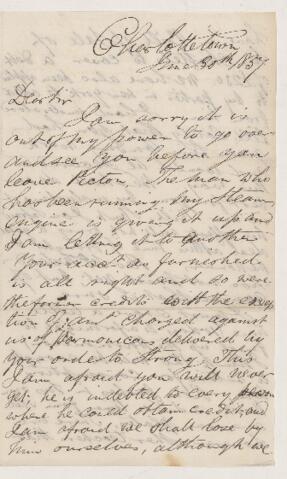 Charlottetown
June 30th 1857
Dear Sir
I am sorry it is
out of my power to go over
and see you before you
leave Pictou. The man who
has been running my Steam
engine is giving it up and
I am letting it to another
Your acct as furnished
is all right and so were
the former credits with the excep
tion of amt charged against
us of Harmonicans delivered by
your order to Strong. This
I am afraid you will never
get, he is indebted to every person
where he could obtain credit and
I am afraid we shall lose by
him ourselves, although we